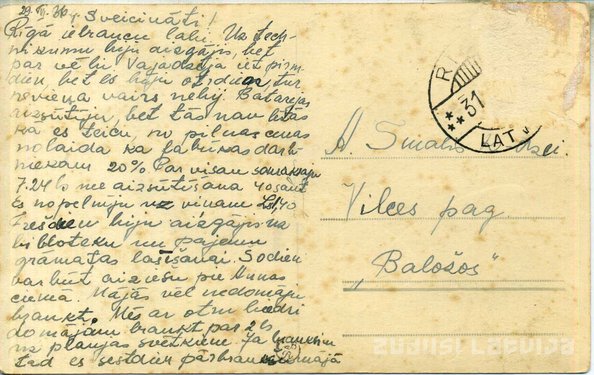 29. VII. 36
Sveicināti!
Rīgā iebraucu labi. Uz tech-
nikumu biju aizgājis, bet
par vēlu. Vajadzēja iet pirm-
dien, bet es biju otrdien, tur
neviena vairs nebij. Batarejas
aizsūtīju, bet tās nav lētas
kā es teicu, no pilnas cenas
nolaida kā fabrikas darb-
niekam 20%. Par visam samaksāju
7.24 ls ne aizsūtīšana 40 sant
Es nopelnīju uz viņam Ls 1,40
Trešdien biju aizgājis na
bibloteku un paņēmu
grāmatas lasīšanai. Šodien
varbūt aiziešu pie Annas
ciemā. Mājās vēl nedomāju
braukt. Mēs ar otru biedri
domājam braukt par 2
na pļaujas svētkiem. Ja
tad es sestdien pārbraukšu mājā
A.
Vilces pag.
„Baložos"
31
LATV
zudusi Latvija